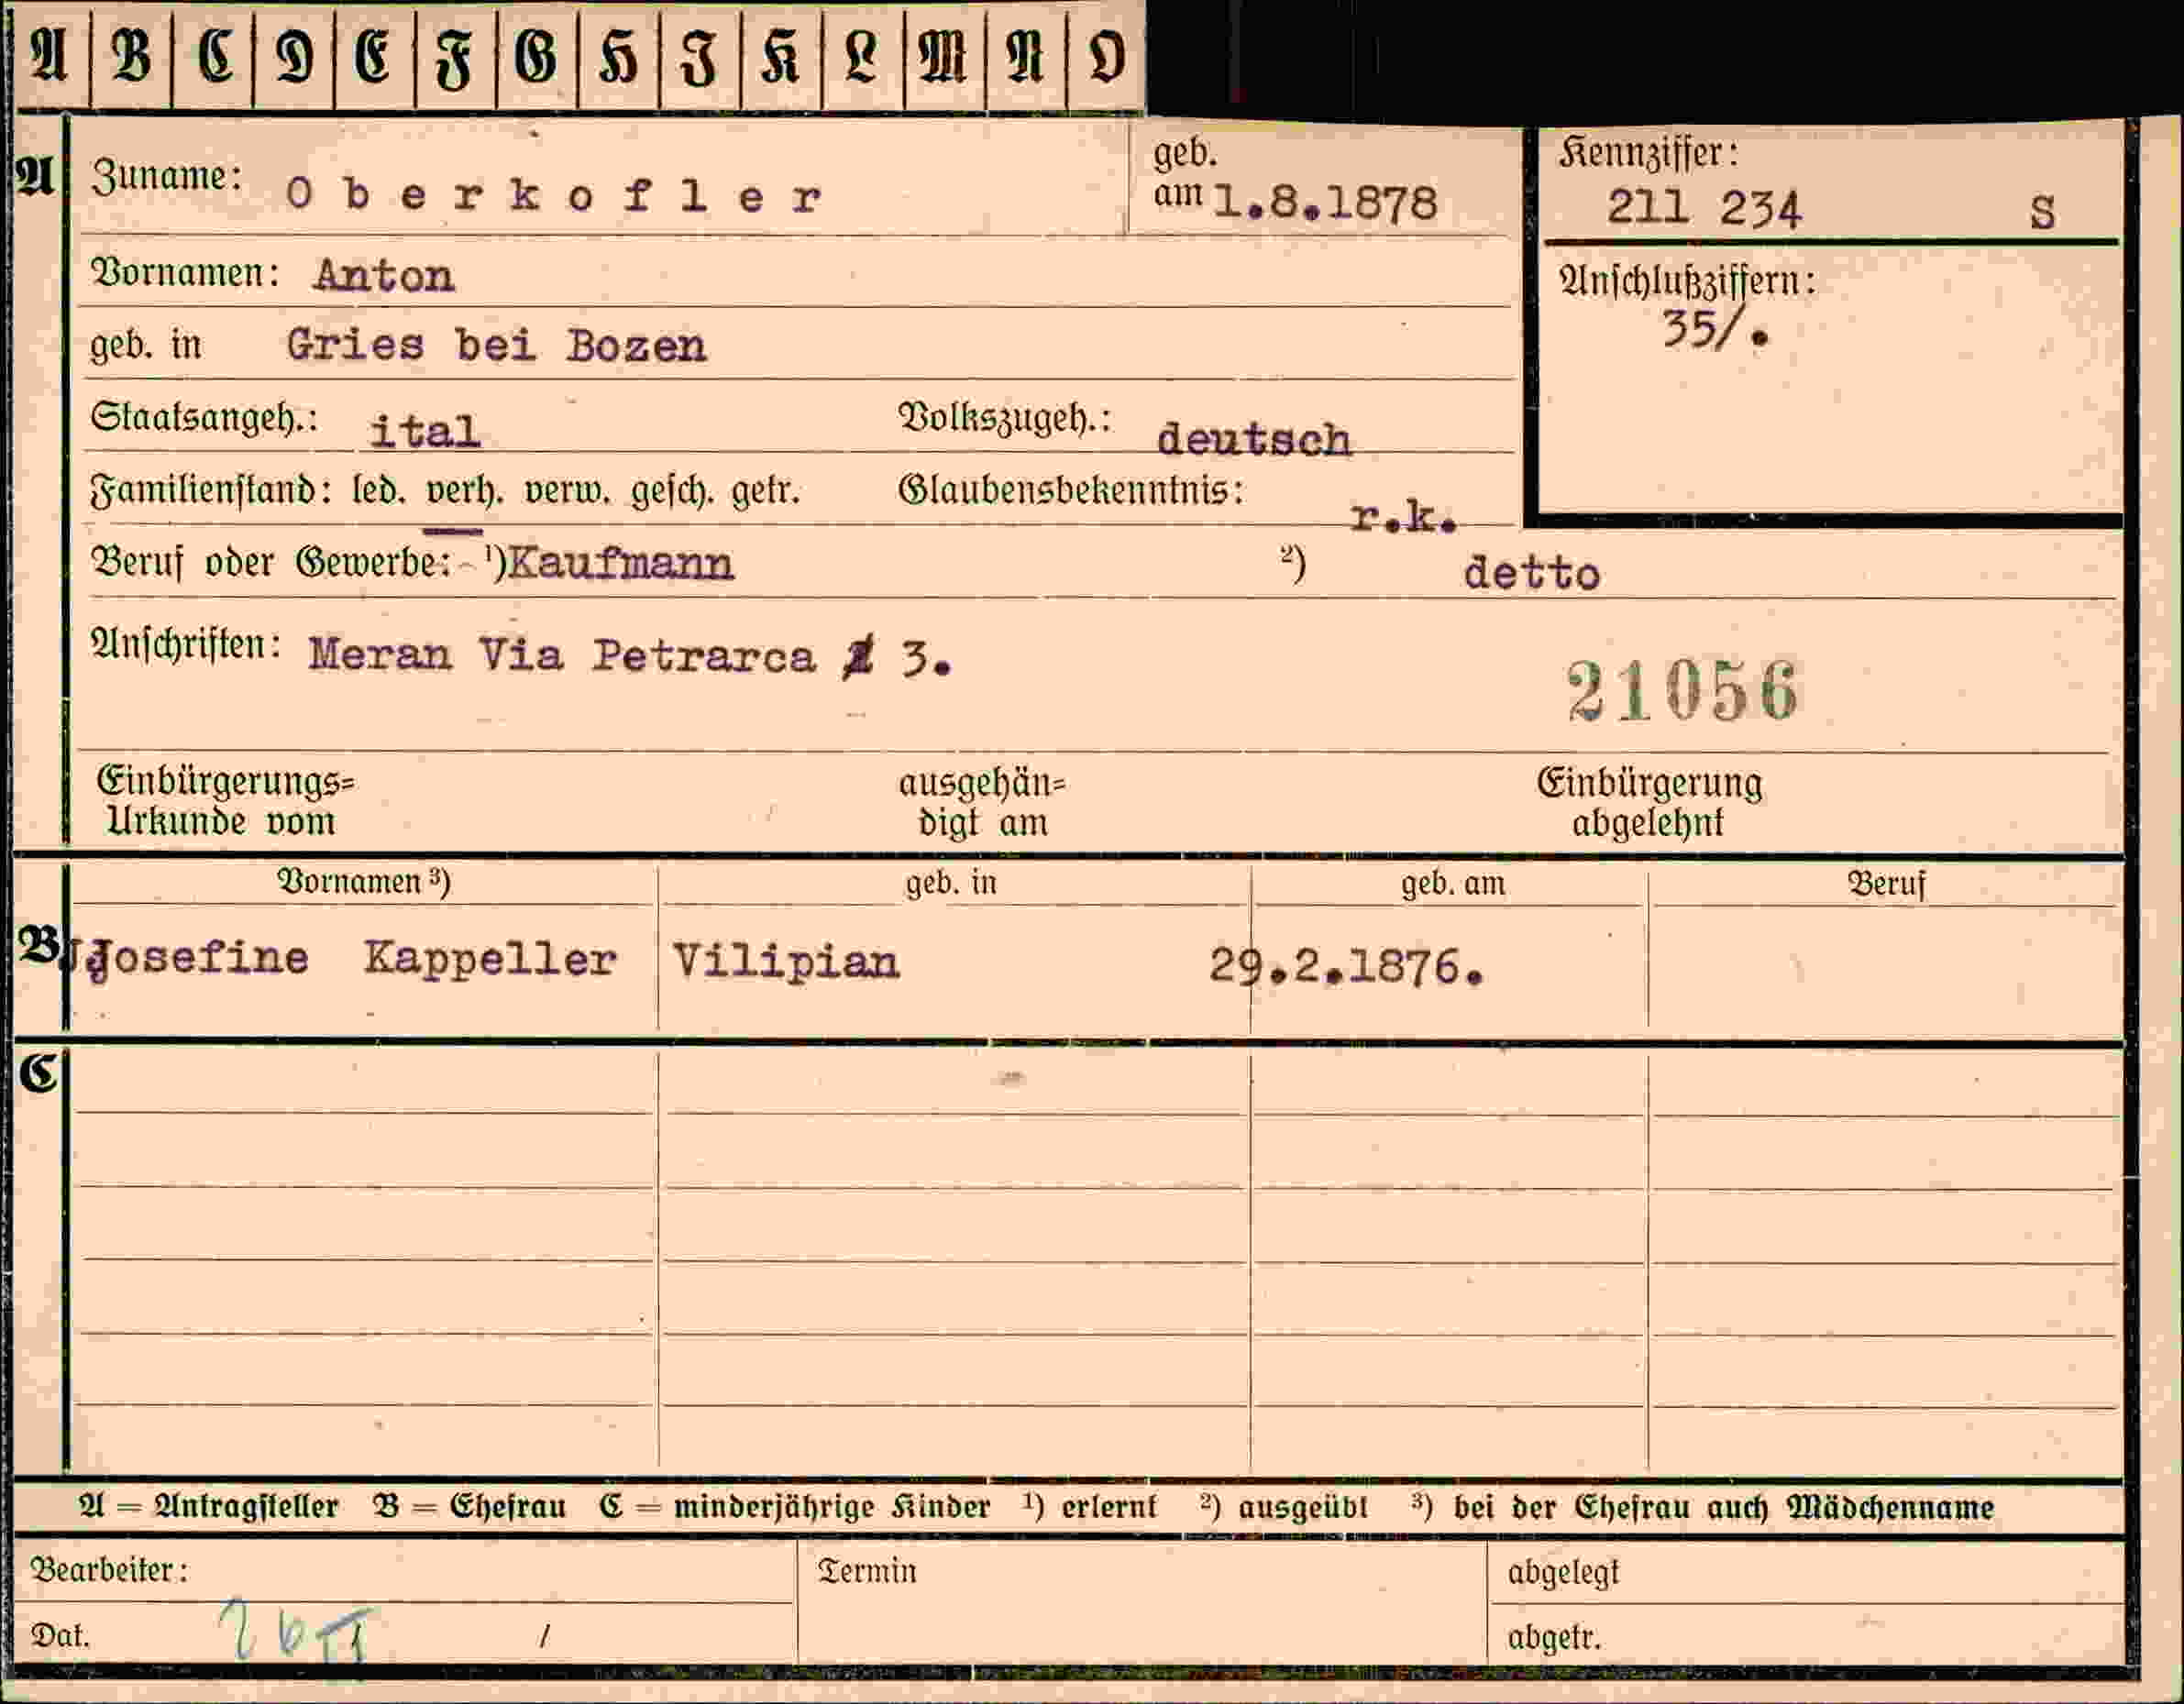 A B C D E F G H J K L M N O
A Zuname: Oberkofler geb. am 1.8.1878 Kennziffer:
211 234 S
Vornamen: Anton Anschlußziffern:
35/.
geb. in Gries bei Bozen
Staatsangeh.: ital Volkszugeh.: deutsch
Familienstand: led. verh. verw. gesch. getr. Glaubensbekenntnis: r.k.
Beruf oder Gewerbe: ¹) Kaufmann ²) detto
Anschriften: Meran Via Petrarca 3.
21056
Einbürgerungs= ausgehän= Einbürgerung
Urkunde vom digt am abgelehnt
Vornamen ³) geb. in geb. am Beruf
B Josefine Kappeller Vilipian 29.2.1876.
C
A = Antragsteller B = Ehefrau C = minderjährige Kinder ¹) erlernt ²) ausgeübt ³) bei der Ehefrau auch Mädchenname
Bearbeiter: Termin abgelegt
Dat. 26 II / abgetr.